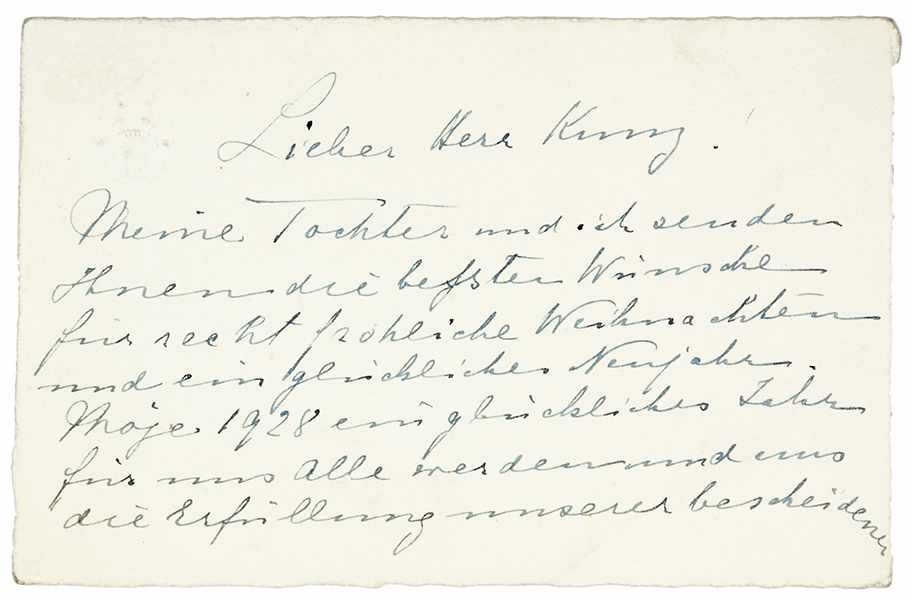 Lieber Herr Kunz!
Meine Tochter und ich senden
Ihnen die beßten Wünsche
für recht fröhliche Weihnachten
und ein glückliches Neujahr.
Möge 1928 ein glückliches Jahr
für uns Alle werden und uns
die Erfüllung unserer bescheidenen